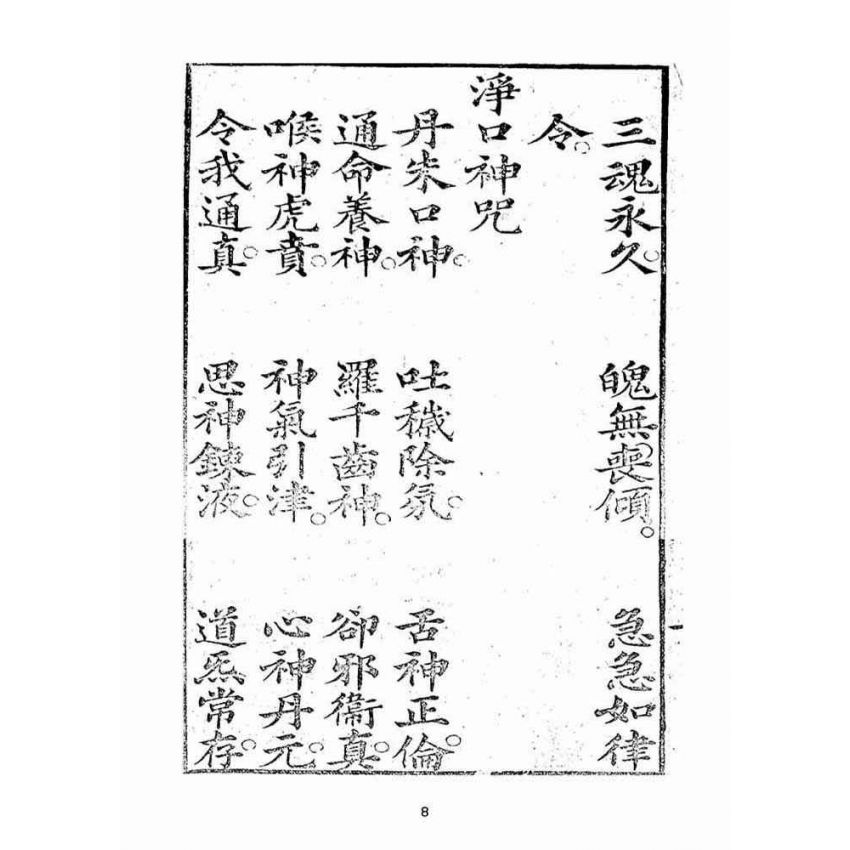 三魂永久。魄無喪傾。急急如律
令。
淨口神咒
丹朱口神。吐穢除氛。舌神正倫。
通命養神。羅千齒神。卻邪衞真。
喉神虎賁。神氣引津。心神丹元。
令我通真。思神鍊液。道炁常存。
8